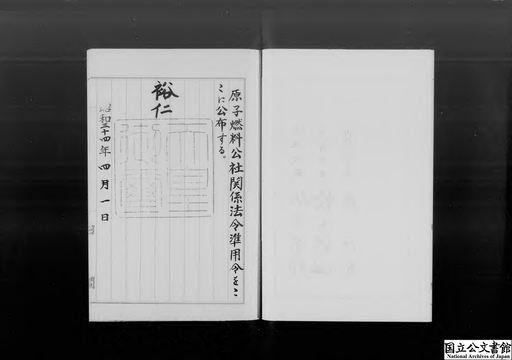 原子燃料公社関係法令準用令をこ
こに公布する。
裕仁
天皇
御璽
昭和三十四年四月一日
国立公文書館
National Archives of Japan